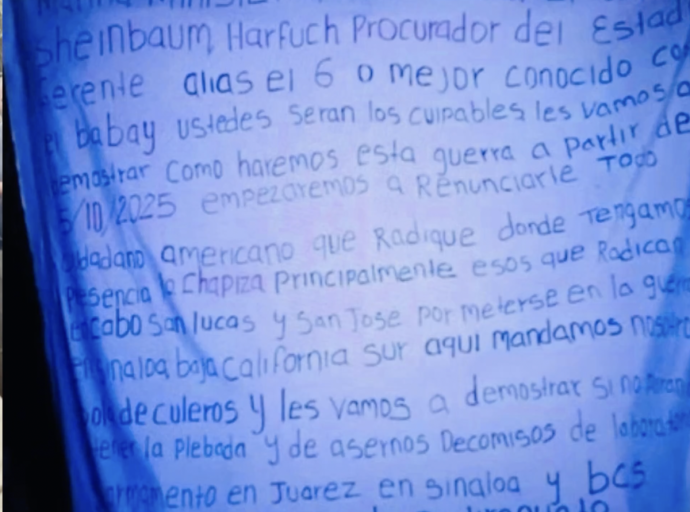 Sheinbaum Harfuch Procurador del Estad
Gerente alias el 6 o mejor conocido co
el babay ustedes seran los culpables les vamos a
demostrar como haremos esta guerra a partir de
5/10/2025 empezaremos a Renunciarle Todo
udadano americano que Radique donde Tengamo
Presencia la Chapiza Principalmente esos que Radican
en cabo San lucas y San Jose por meterse en la guerra
en sinaloa baja California sur aqui mandamos nosotro
de culeros y les vamos a demostrar si no
la Plebada y de asernos Decomisos de laborator
armamento en Juarez en sinaloa y bcs